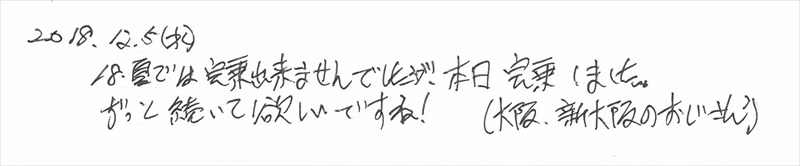 2018.12.5(水)
18.夏では完乗出来ませんでしたが、本日完乗しました。
ずっと続いて欲しいですね!(大阪、新大阪のおじさん)